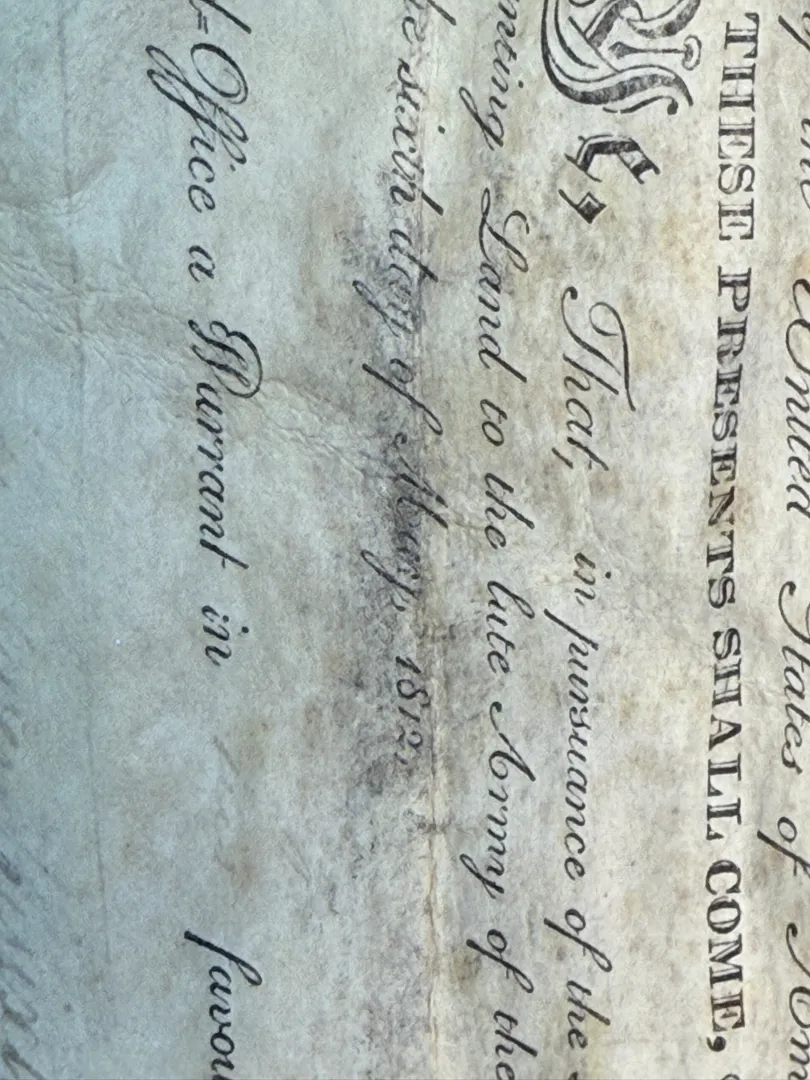 United States of
THESE PRESENTS SHALL COME,
That, in pursuance of the
nting Land to the late Army of the
he sixth day of May, 1812,
d=Office a Warrant in favou